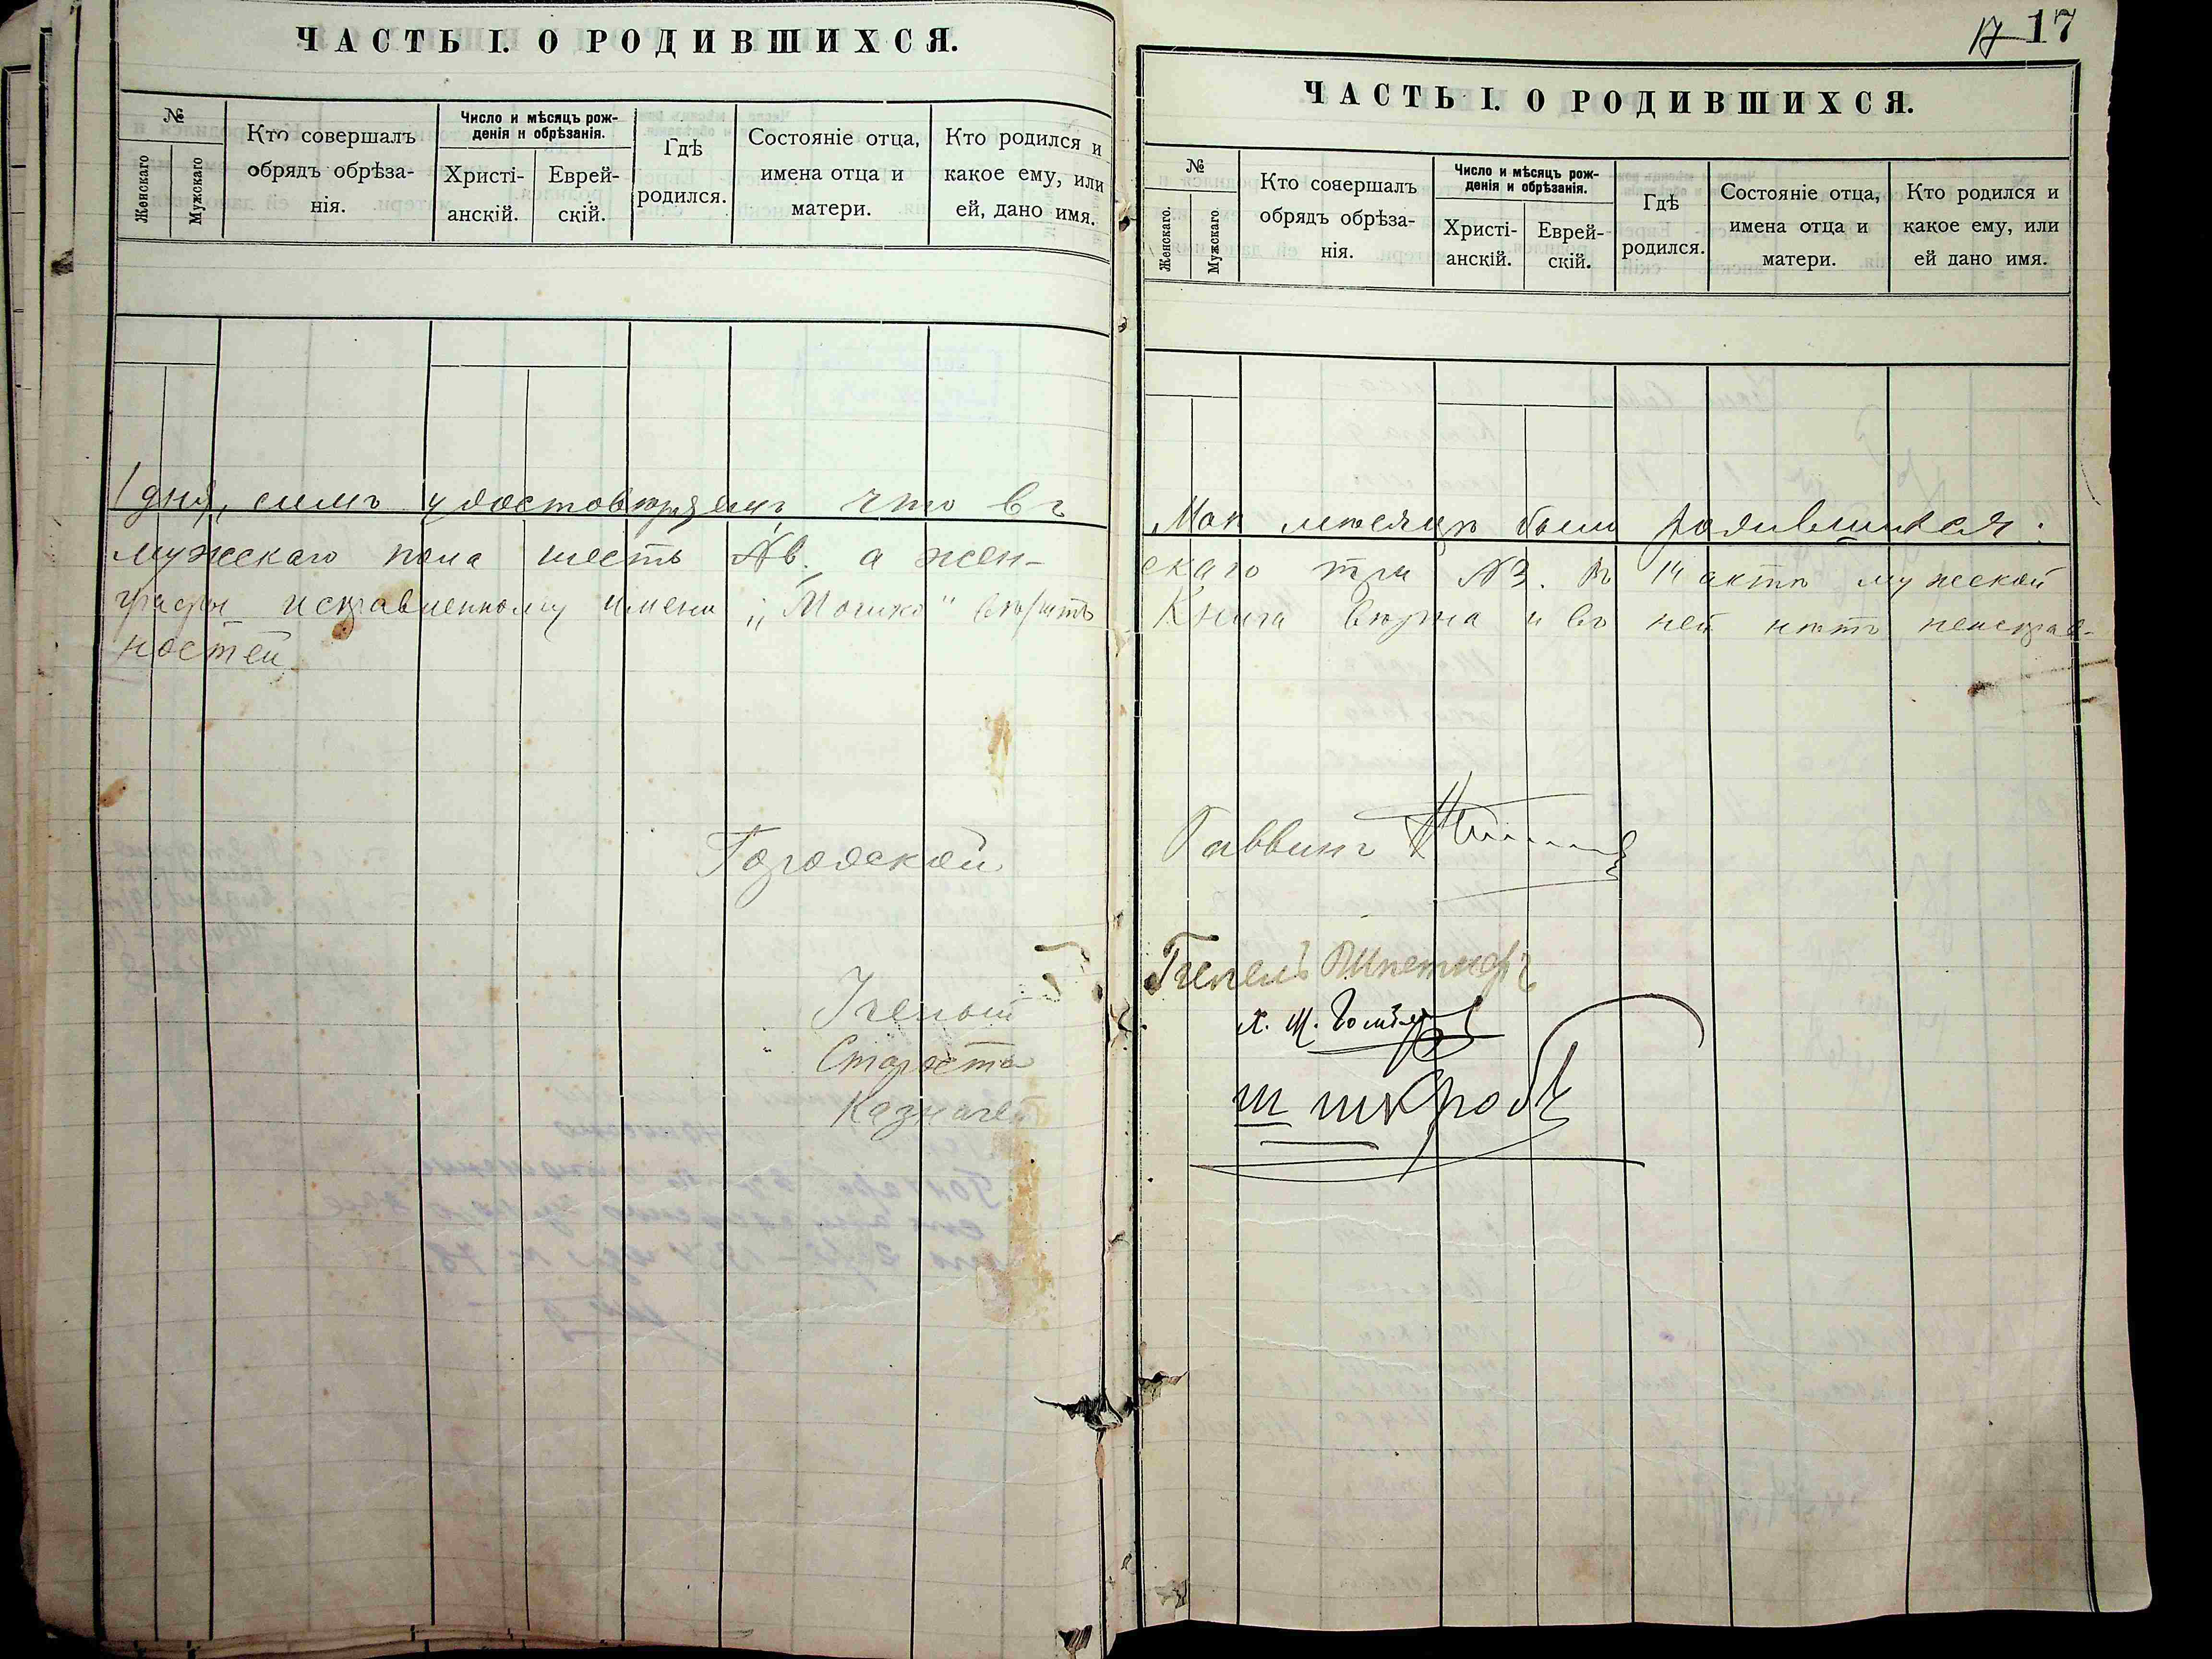 ЧАСТЬ I. О РОДИВШИХСЯ.
№
Женскаго
Мужскаго
Кто совершалъ
обрядъ обрѣза-
нія.
Число и мѣсяцъ рож-
денія и обрѣзанія.
Христі-
анскій.
Еврей-
скій.
Гдѣ
родился.
Состояніе отца,
имена отца и
матери.
Кто родился и
какое ему, или
ей, дано имя.
1 дня, симъ удостовѣряемъ что въ
мужскаго пола шесть а жен-
графы исправленному имени „Мошко" вѣрить
ностей
Городской
Ученый
Староста
Казначей
17 17
ЧАСТЬ I. О РОДИВШИХСЯ.
№
Женскаго.
Мужскаго.
Кто совершалъ
обрядъ обрѣза-
нія.
Число и мѣсяцъ рож-
денія и обрѣзанія.
Христі-
анскій.
Еврей-
скій.
Гдѣ
родился.
Состояніе отца,
имена отца и
матери.
Кто родился и
какое ему, или
ей дано имя.
Маѣ мѣсяцѣ было родившихся:
скаго три №3. Въ 14 актѣ мужской
Книга вѣрна и въ ней нѣтъ неисправ-
Раввинъ
Х. М.
Ш Шкробъ